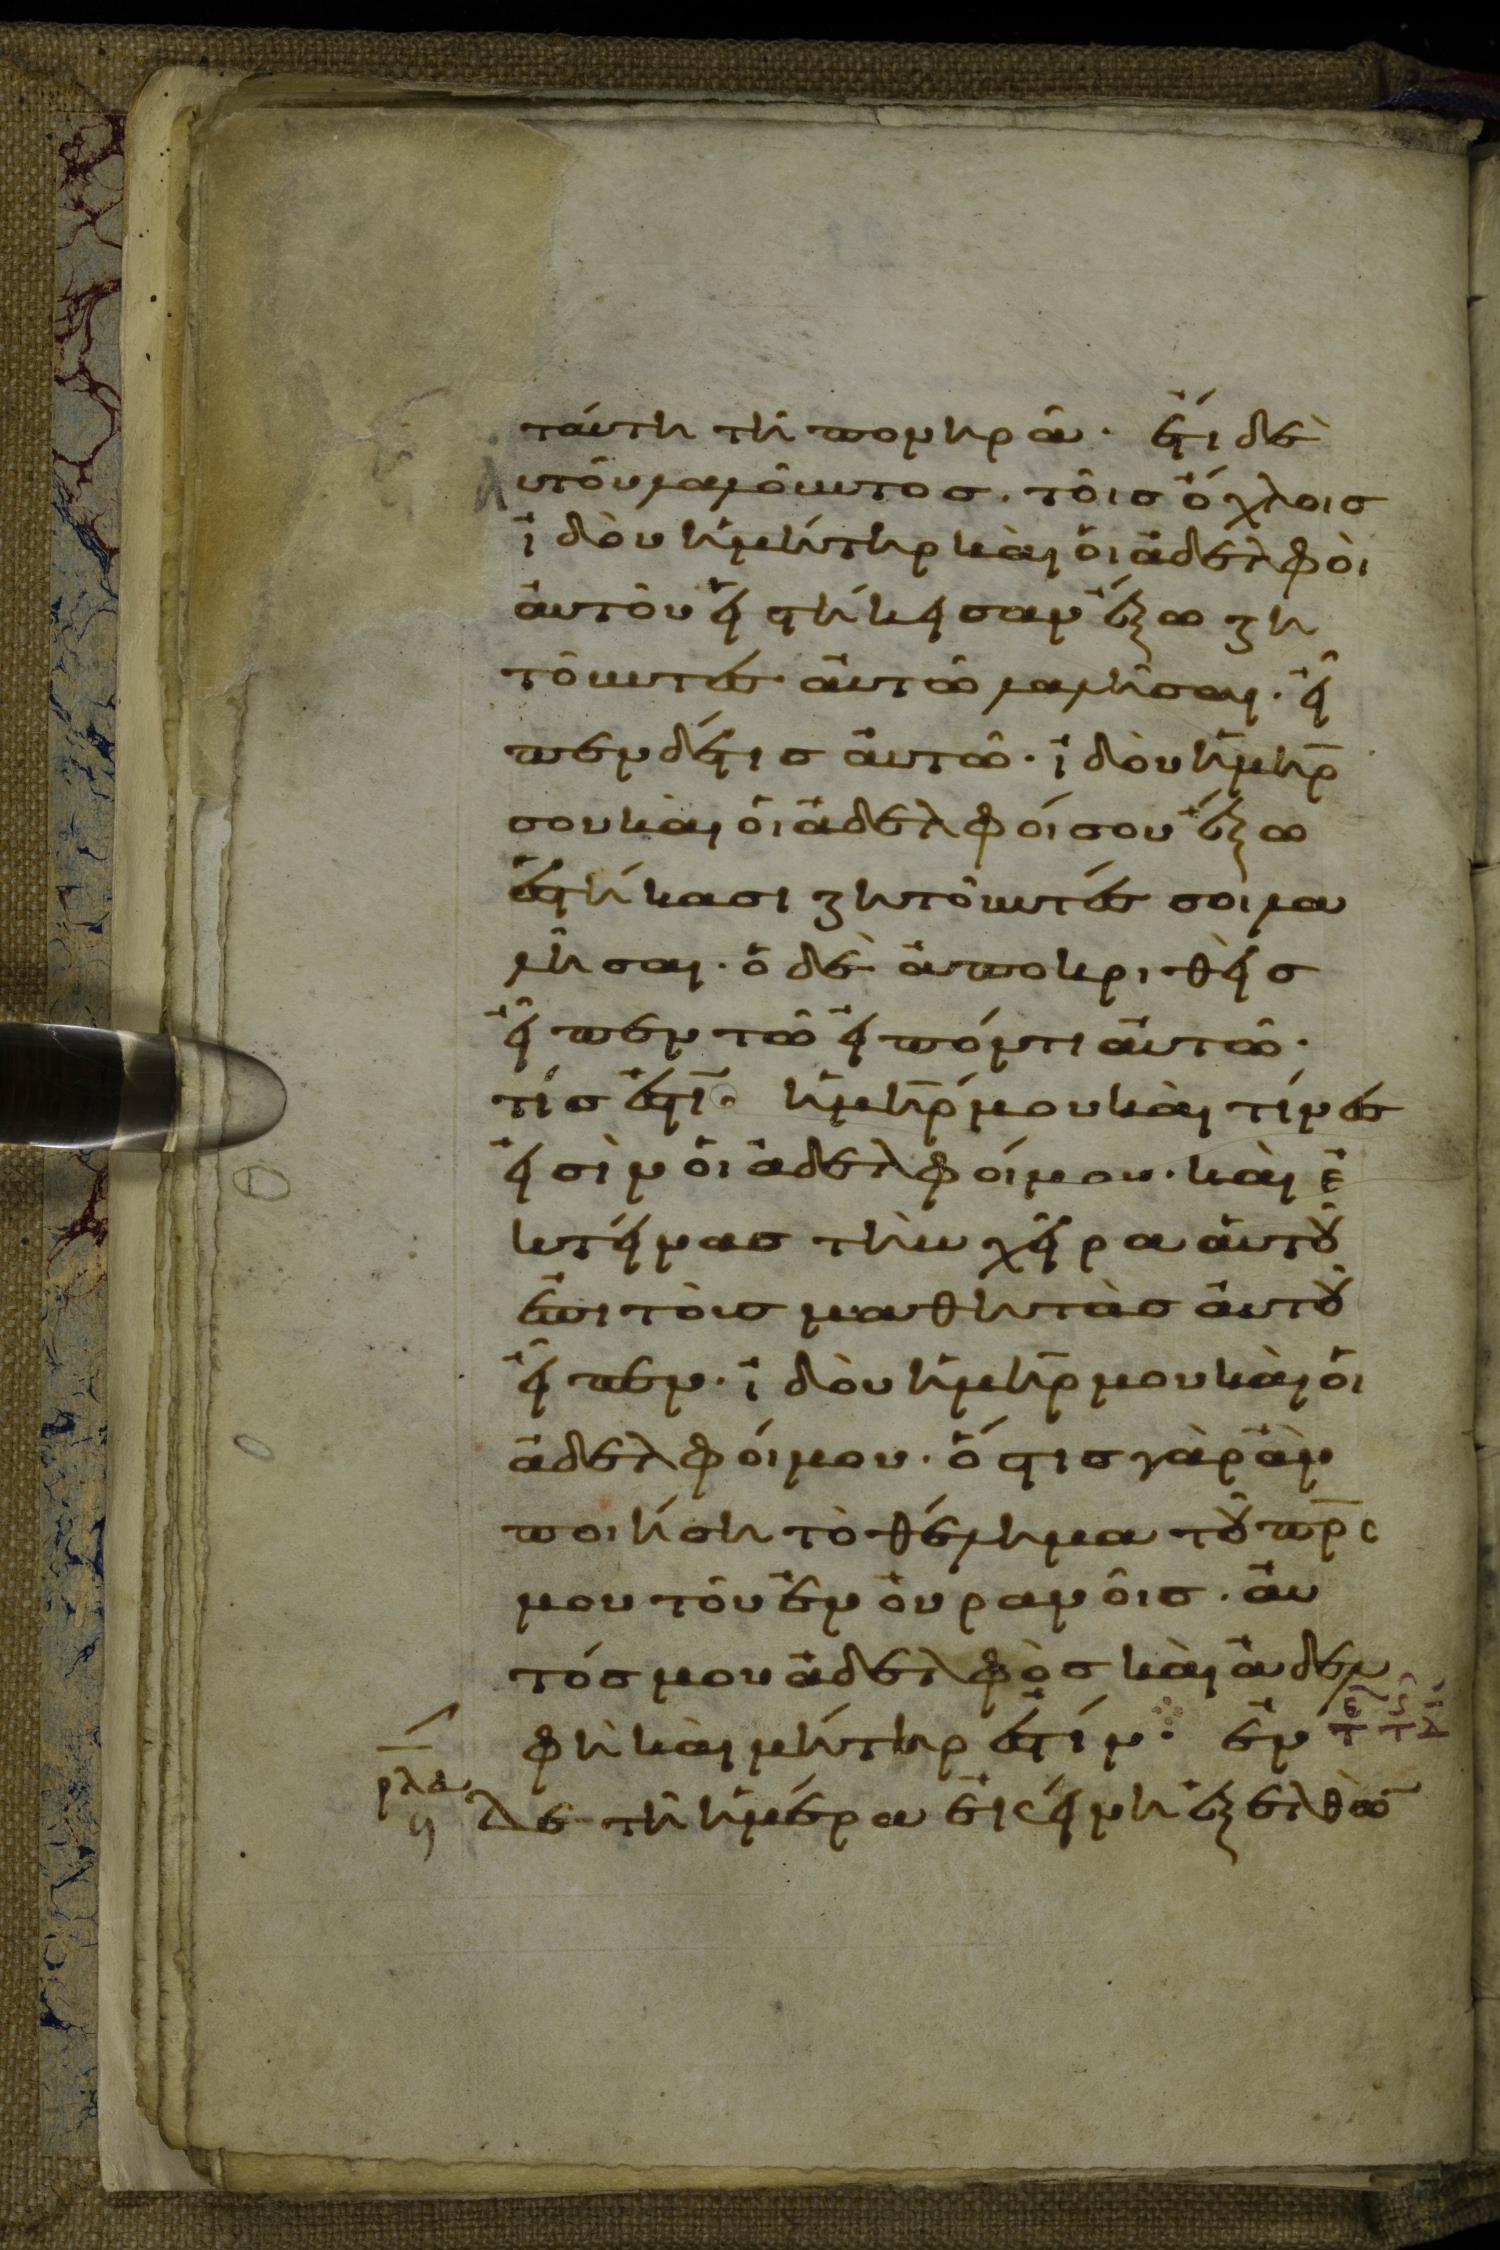 ταύτη τῆ πονηρᾶ· ἔτι δὲ
υτοῦ λαλοῦντος. τοῖς ὄχλοις
ἰδοὺ ἡ μήτηρ καὶ οἱ ἀδελφοὶ
ἀυτοῦ εἰστήκεισαν ἔξω ζη
τοῦντες ἀυτῶ λαλῆσαι. εἶ
πεν δέ τις ἀυτῶ· ἰδοὺ ἡ μηρ
σου καὶ οἱ ἀδελφοί σου ἔξω
ἑστήκασι ζητοῦντές σοι λα
λῆσαι· ὁ δὲ ἀποκριθεὶς
εἶπεν τῶ εἰπόντι ἀυτῶ·
τίς ἐστι· ἡ μηρ μου καὶ τίνες
εἰσὶν οἱ ἀδελφοί μου· καὶ ἐ
κτείνας τὴν χεῖρα ἀυτοῦ
ἐπὶ τοὺς μαθητὰς ἀυτοῦ
εἶπεν· ἰδοὺ ἡ μηρ μου καὶ οἱ
ἀδελφοί μου· ὅστις γὰρ ἂν
ποιήση τὸ θέλημα τοῦ πρς
μου τοῦ ἐν οὐρανοῖς. ἀυ
τός μου ἀδελφὸς καὶ ἀδελ
φὴ καὶ μήτηρ ἐστίν· ἐν
ρλα δε τῆ ἡμέρα ἐκείνη ἐξελθὼ